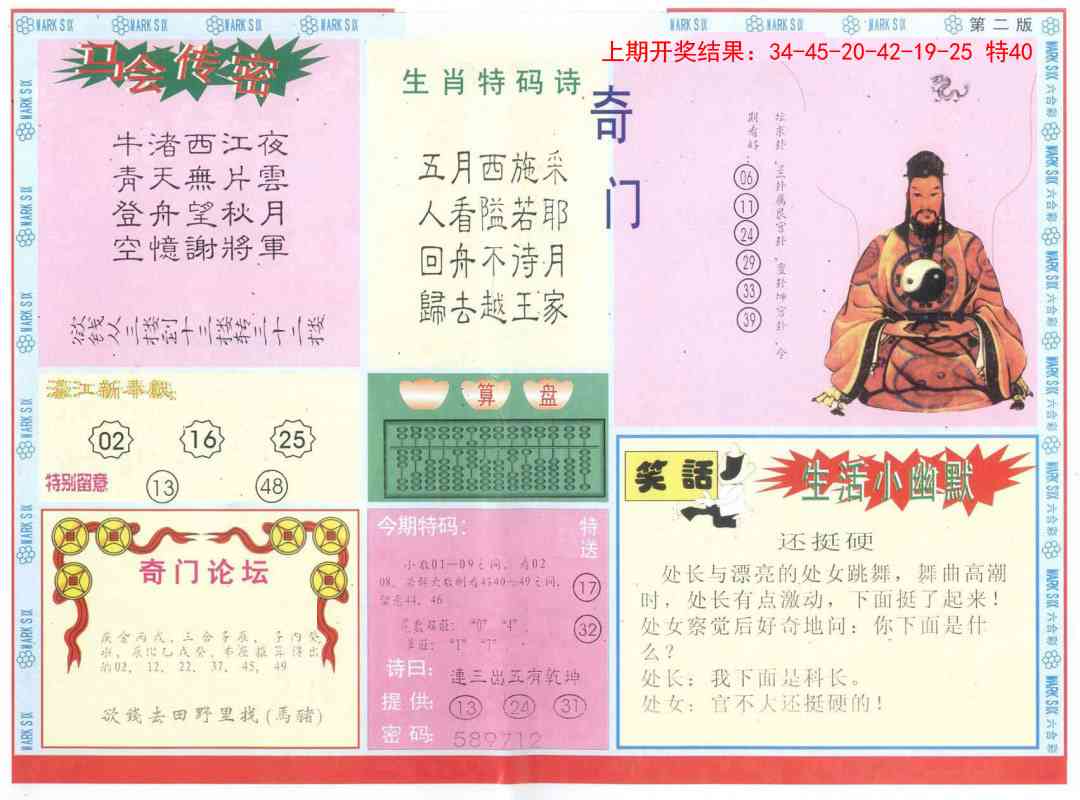 MARK SIX
MARK SIX
MARK SIX
MARK SIX
MARK SIX
MARK SIX
MARK SIX
第二版
上期开奖结果：34-45-20-42-19-25 特40
马会传密
牛渚西江夜
青天無片雲
登舟望秋月
空憶謝將軍
欲钱从三楼到十三楼转三十二楼
生肖特码诗
五月西施采
人看隘若耶
回舟不待月
歸去越王家
奇门
坛求卦，兰卦属艮宫卦，变卦坤宫卦，今
期看好：
06
11
24
29
33
39
濠江新奉獻
02 16 25
特别留意
13 48
算盘
奇门论坛
的02、12、22、37、45、49
欲錢去田野里找(馬豬)
今期特码：
小数01—09之间，看02
留意44、46
特送
17
32
诗曰：連三出五有乾坤
提供：13 24 31
密码：589712
笑話
生活小幽默
还挺硬
处长与漂亮的处女跳舞，舞曲高潮
时，处长有点激动，下面挺了起来！
处女察觉后好奇地问：你下面是什
么？
处长：我下面是科长。
处女：官不大还挺硬的！
MARK SIX 六合彩
MARK SIX 六合彩
MARK SIX 六合彩
MARK SIX 六合彩
MARK SIX 六合彩
MARK SIX 六合彩
MARK SIX 六合彩